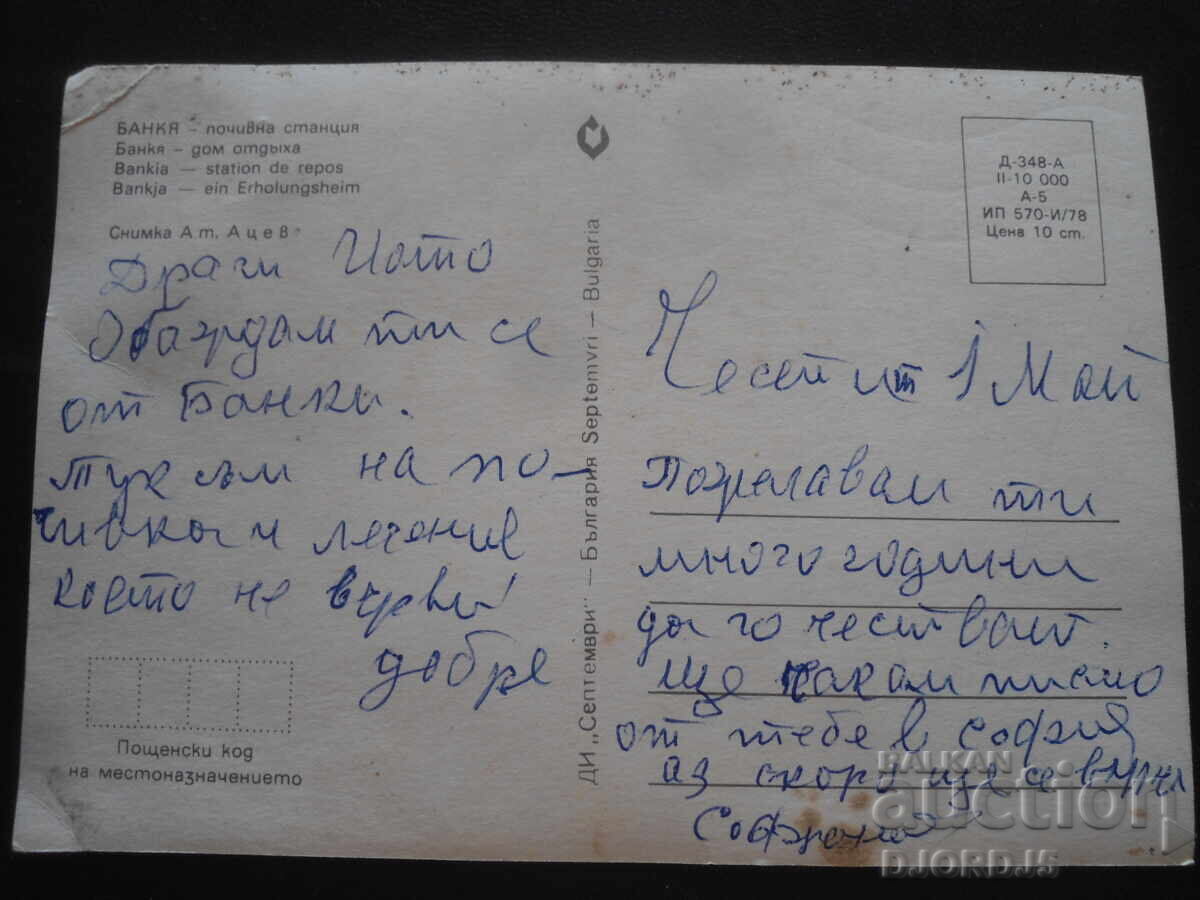 БАНКЯ – почивна станция
Банкя – дом отдыха
Bankia — station de repos
Bankja — ein Erholungsheim
Снимка Ат. Ацев
Драги
Обаждам ти се
от Банки.
тук съм на по-
чивка и лечение
което не върви
добре
Пощенски код
на местоназначението
ДИ „Септември" — България Septemvri — Bulgaria
Д-348-А
II-10 000
А-5
ИП 570-И/78
Цена 10 ст.
Честит 1 Май
Пожелавам ти
много години
да го честваш.
ще чакам писмо
от тебе в София
аз скоро ще се
BALKAN
auction
DJORDJ5